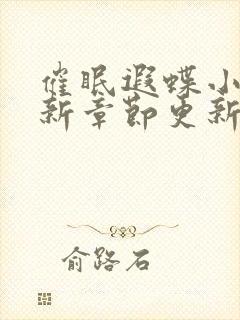 催眠遐蝶小
新章節更新
俞路石